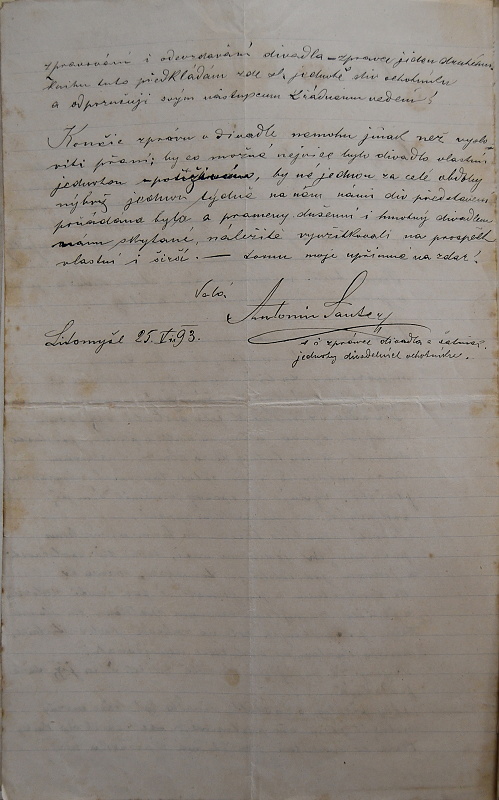 zpravování i odevzdávání divadla – zprávce jeden druhému
knihu tuto předkládám zde sl. jednotě div. ochotníků
a odporučuji svým nástupcům k řádnému vedení!
Konče zprávu o divadle nemohu jinak než vyslo-
viti přání, by co možná nejvíce bylo divadlo vlastní
jednotou, by ne jednou za celé období
nýbrž jednou týdně na něm námi div. představení
pořádáno bylo a prameny duševní i hmotný divadlem
nám skýtané, náležitě využitkovali na prospěch
vlastní i širší. — Tomu moje upřímné na zdar!
Volá
Antonín
Litomyšl 25. V 93.
t. č. zprávce divadla a
jednoty divadelních ochotníků.